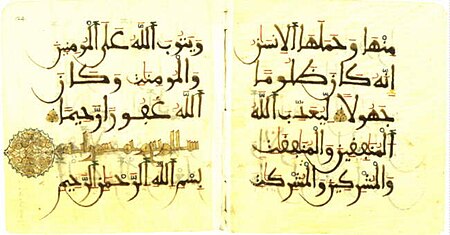 مِنْهَا وَحَمَلَهَا اَلِانسَٰنُ
إِنَّهُ كَانَ ظَلُومًا
جَهُولًا لِّيُعَذِّبَ اَللَّهُ
اَلْمُنَٰفِقِينَ وَالْمُنَٰفِقَٰتِ
وَالْمُشْرِكِينَ وَالْمُشْرِكَٰتِ
وَيَتُوبَ اَللَّهُ عَلَى اَلْمُومِنِينَ
وَالْمُومِنَٰتِ وَكَانَ
اَللَّهُ غَفُورًا رَّحِيمًا
بِسْمِ اِللَّهِ اِلرَّحْمَٰنِ اِلرَّحِيمِ